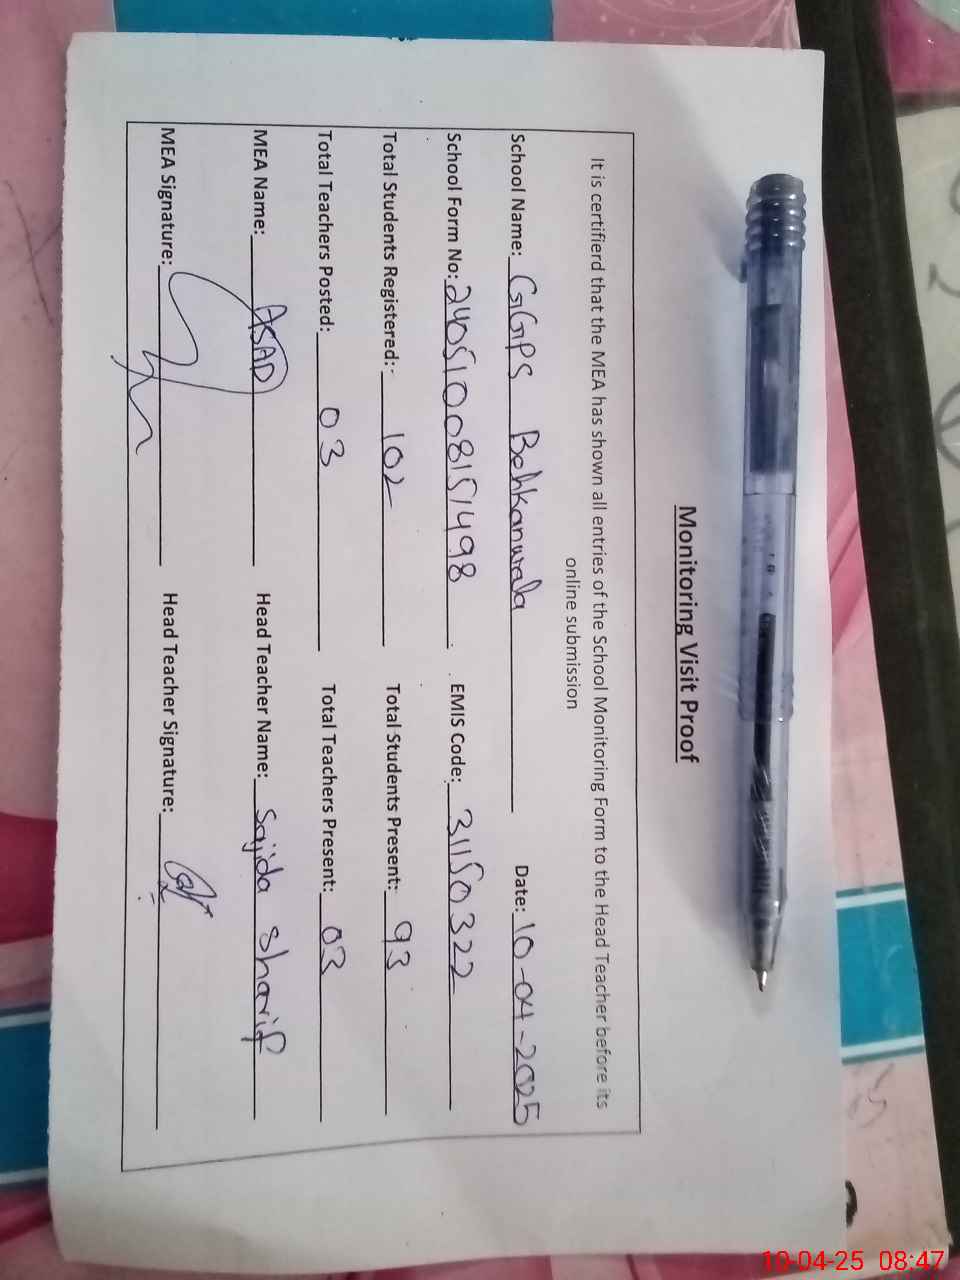 Monitoring Visit Proof
It is certifierd that the MEA has shown all entries of the School Monitoring Form to the Head Teacher before its
online submission
School Name: GGPS Bohkanwala Date: 10-04-2025
School Form No: 24051008151498 EMIS Code: 31150322
Total Students Registered: 102 Total Students Present: 93
Total Teachers Posted: 03 Total Teachers Present: 03
MEA Name: ASAD Head Teacher Name: Sajida Sharif
MEA Signature: Head Teacher Signature:
10-04-25 08:47